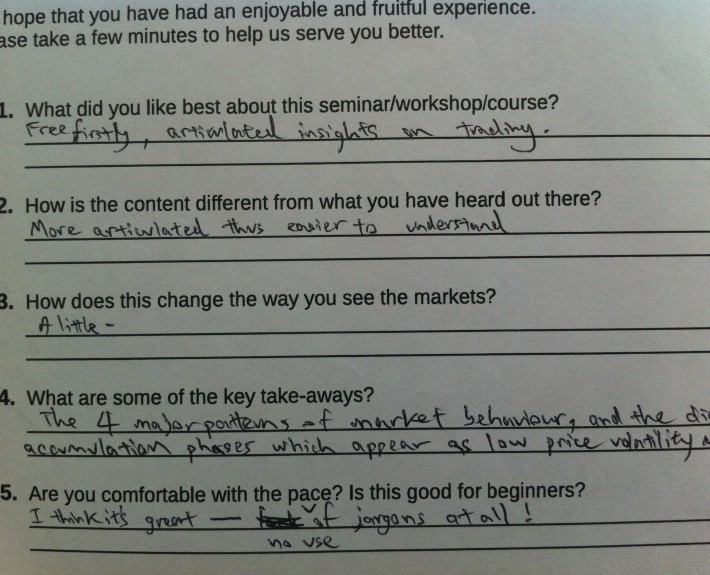 hope that you have had an enjoyable and fruitful experience.
ase take a few minutes to help us serve you better.
1. What did you like best about this seminar/workshop/course?
Free firstly, articulated insights on trading.
2. How is the content different from what you have heard out there?
More articulated thus easier to understand
3. How does this change the way you see the markets?
A little -
4. What are some of the key take-aways?
The 4 major patterns of market behaviour, and the di
accumulation phases which appear as low price volatility
5. Are you comfortable with the pace? Is this good for beginners?
I think it's great — of jargons at all!
no use